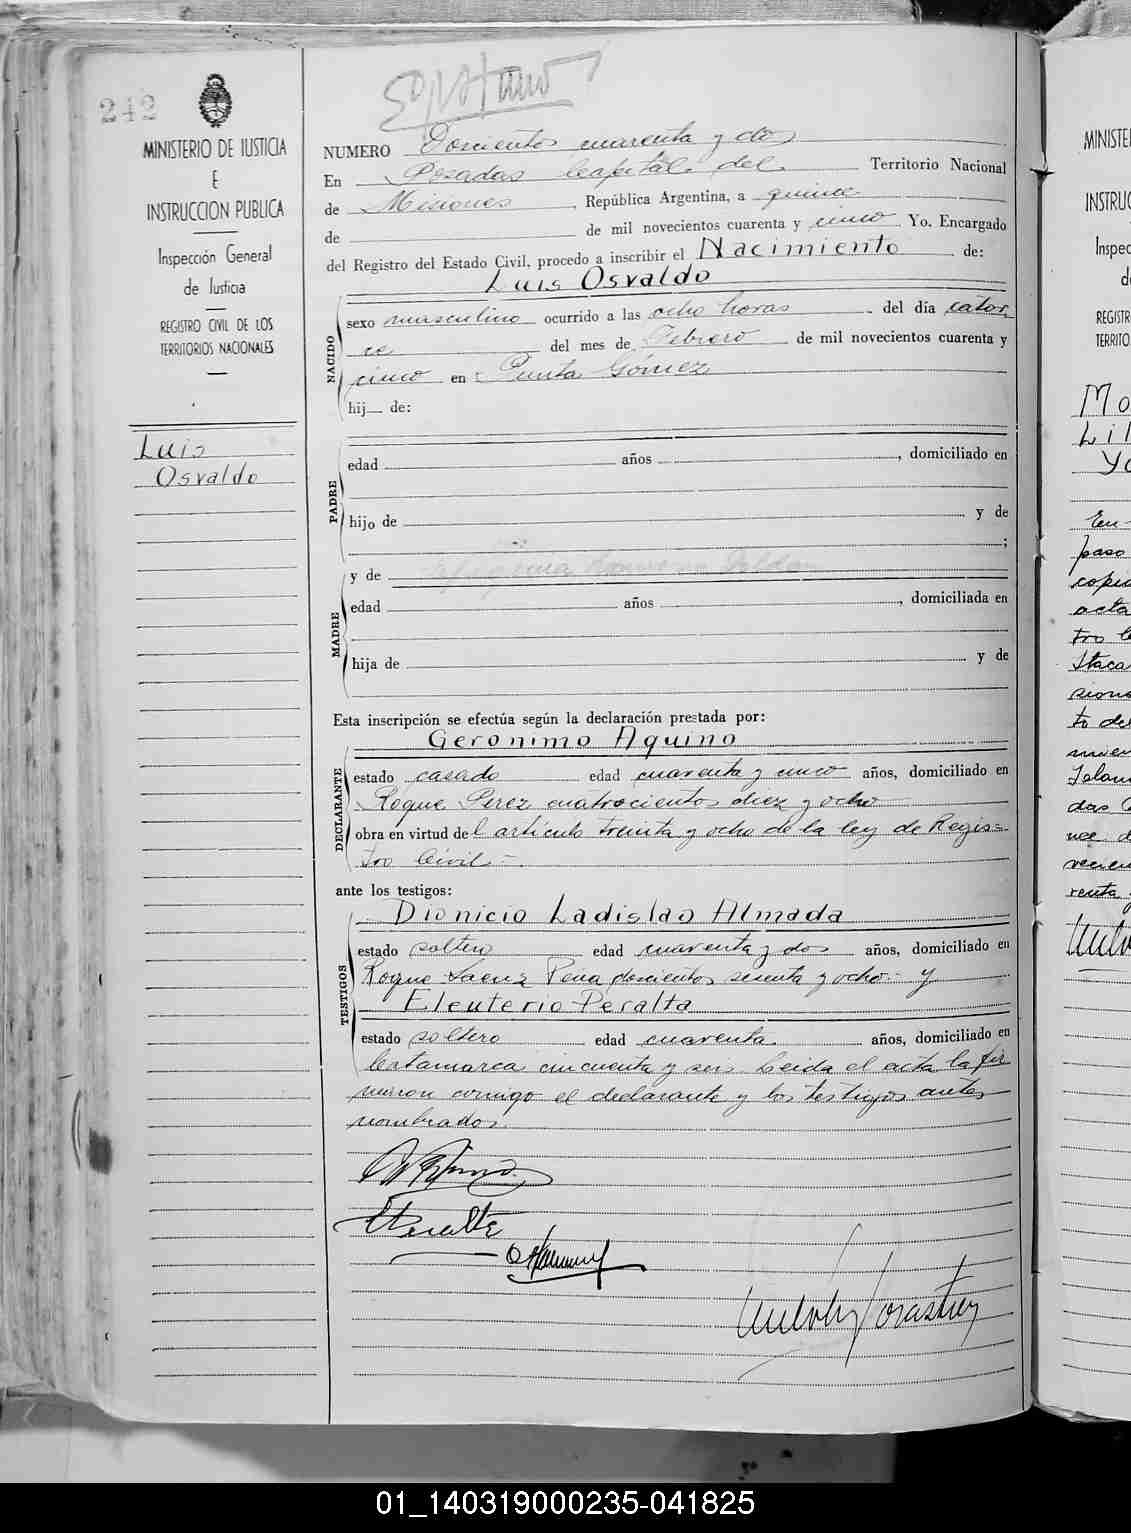 242
MINISTERIO DE JUSTICIA
E
INSTRUCCION PUBLICA
Inspección General
de Justicia
REGISTRO CIVIL DE LOS
TERRITORIOS NACIONALES
Luis
Osvaldo
NUMERO Doscientos cuarenta y dos
En Posadas Capital del Territorio Nacional
de Misiones, República Argentina, a quince
de de mil novecientos cuarenta y cinco Yo. Encargado
del Registro del Estado Civil, procedo a inscribir el Nacimiento de:
Luis Osvaldo
NACIDO
sexo masculino ocurrido a las ocho horas del día cator
ce del mes de Febrero de mil novecientos cuarenta y
cinco en Punta Gómez
hij de:
PADRE
edad años, domiciliado en
hijo de y de
;
MADRE
y de
edad años, domiciliada en
hija de y de
Esta inscripción se efectúa según la declaración prestada por:
Geronimo Aquino
DECLARANTE
estado casado edad cuarenta y cinco años, domiciliado en
Roque Perez cuatrocientos diez y ocho
obra en virtud del artículo treinta y ocho de la ley de Regis=
tro Civil.-
ante los testigos:
Dionicio Ladislao Almada
TESTIGOS
estado soltero edad cuarenta y dos años, domiciliado en
Roque Saenz Pena doscientos sesenta y ocho y
Eleuterio Peralta
estado soltero edad cuarenta años, domiciliado en
Catamarca cincuenta y seis Leida el acta la fir
maron conmigo el declarante y los testigos antes
nombrados.
EPeralta
MINISTE
INSTRUC
Inspec
d
REGISTR
TERRITO
Mo
Lil
Yo
En
paso
copia
acta
01_140319000235-041825